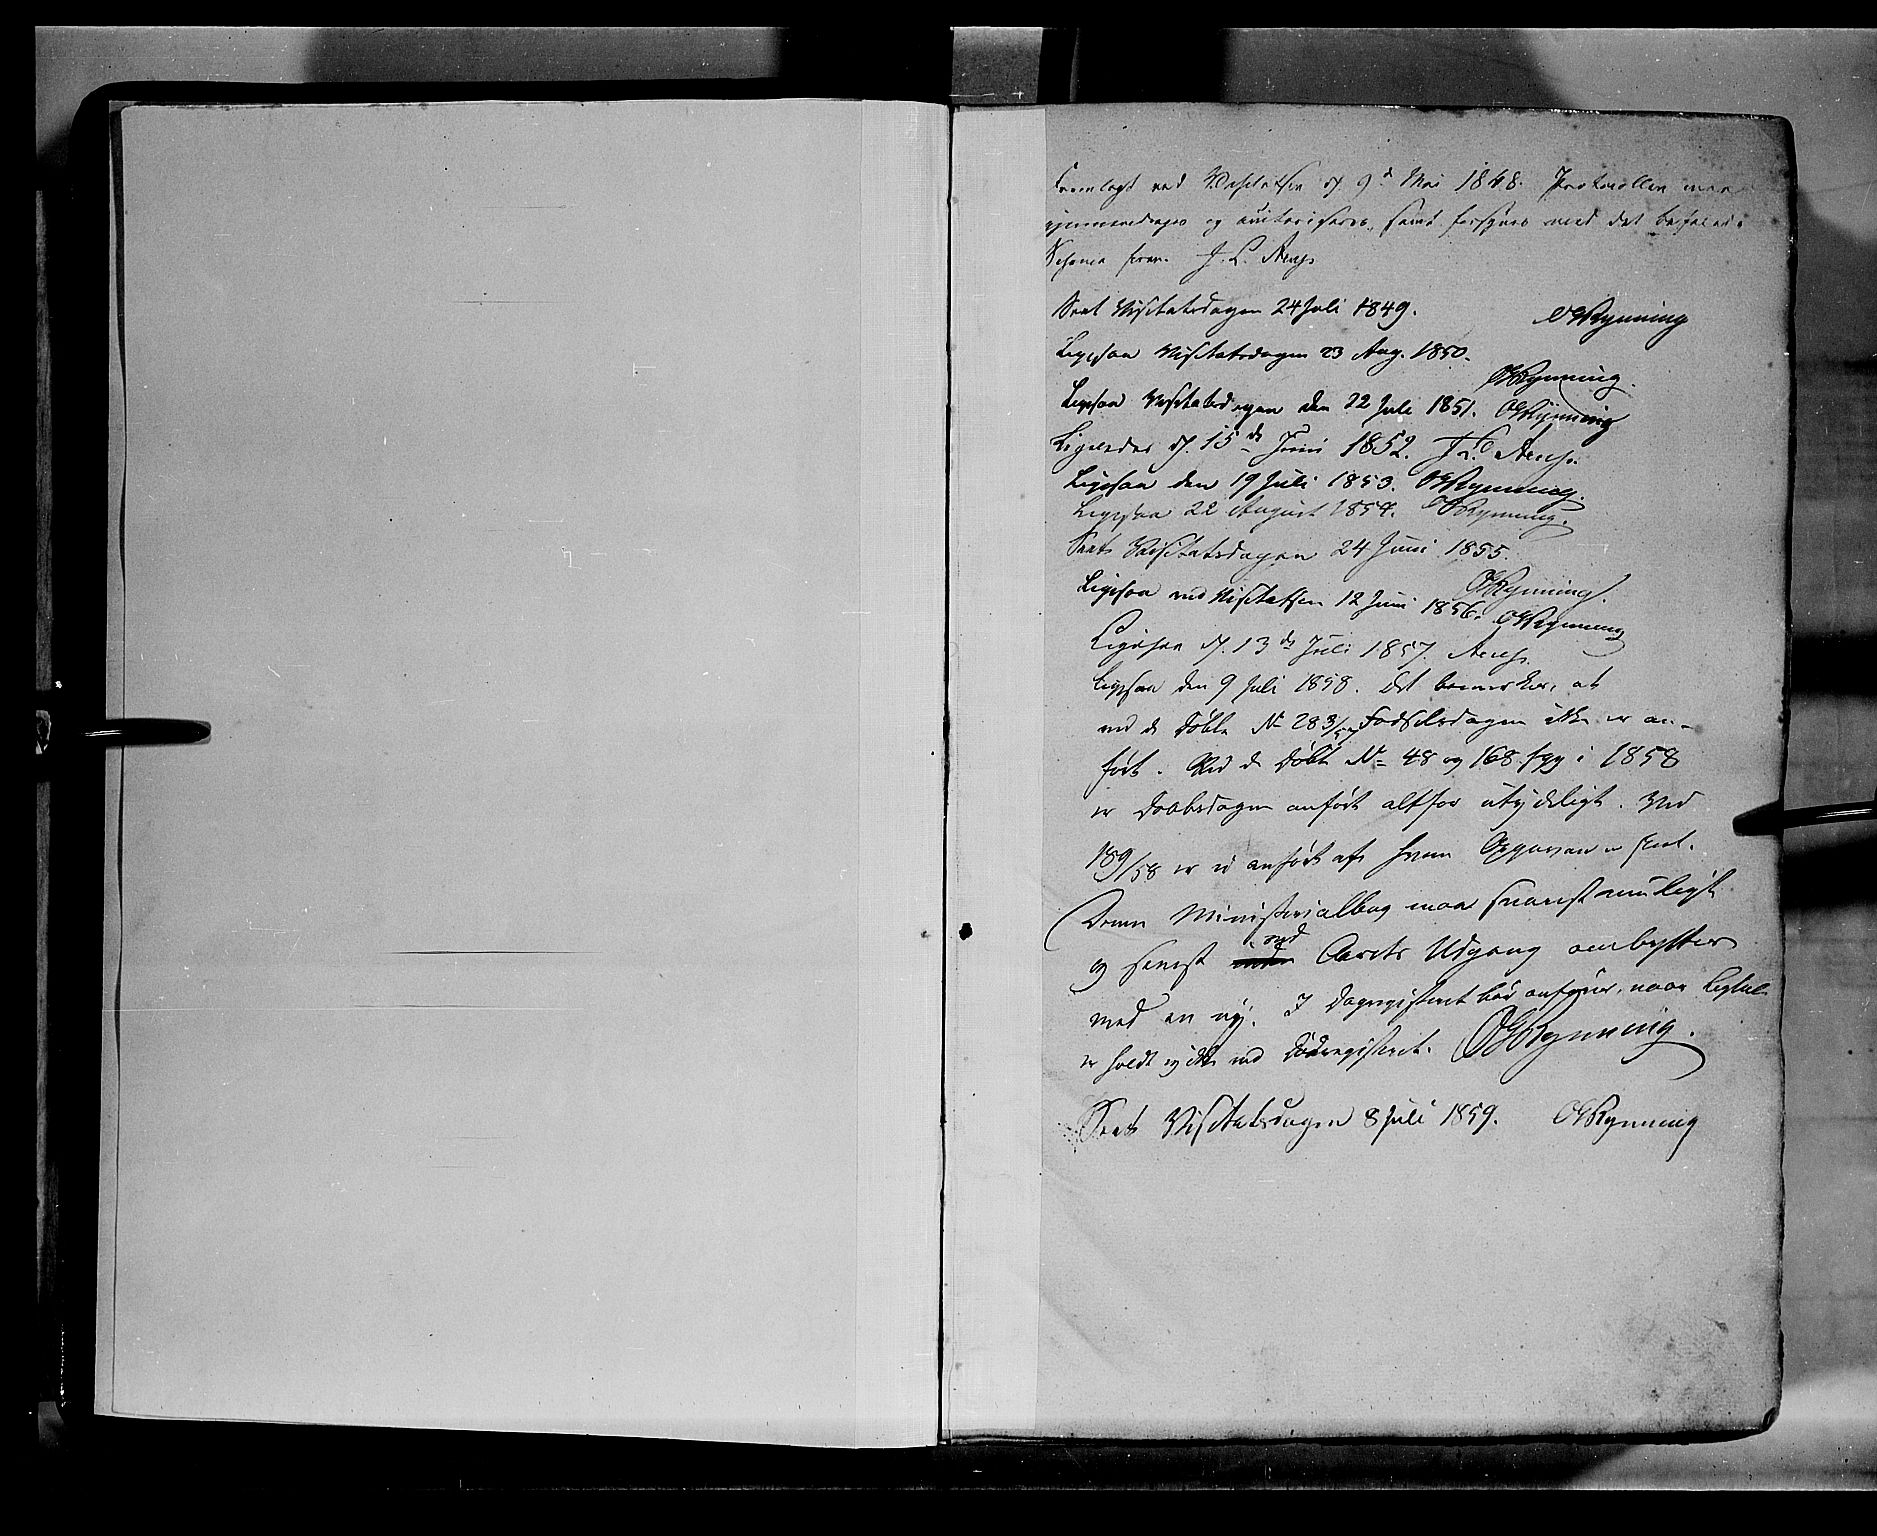 Fremlagt ved Visitatsen d. 9d Mai 1848. Protocollen maa
gjennemdrages og autoriseres, samt forsynes med det befalede
Schema foran. J. L. Arup
Seet Visitatsdagen 24 Juli 1849. OERynning
Ligesaa Visitatsdagen 23 Aug. 1850.
OERynning.
Ligesaa Visitatsdagen den 22 Juli 1851. OERynning
Ligeledes d. 15de Juni 1852. J. L. Arup.
Ligesaa den 19 Juli 1853. OERynning.
Ligesaa 22 August 1854. OERynning.
Seet Visitatsdagen 24 Juni 1855.
OERynning.
Ligesaa ved Visitatsen 12 Juni 1856. OERynning
Ligesaa d. 13de Juli 1857. Arup.
Ligesaa den 9 Juli 1858. Det bemærkes, at
ved de Døbte No 283/57 Fødselsdagen ikke er an-
ført. Ved de Døbte No 48 og 168 fgg i 1858
er Daabsdagen anført altfor utydeligt. Ved
189/58 er ei anført af hvem Opgaven er skeet.
Denne Ministerialbog maa snarest muligt
og senest ved Aarets Udgang ombyttes
med en ny. I Dagregistret bør anføres, naar Ligtale
er holdt og ikke ved Dødsregistret. OERynning.
Seet Visitatsdagen 8 Juli 1859. OERynning